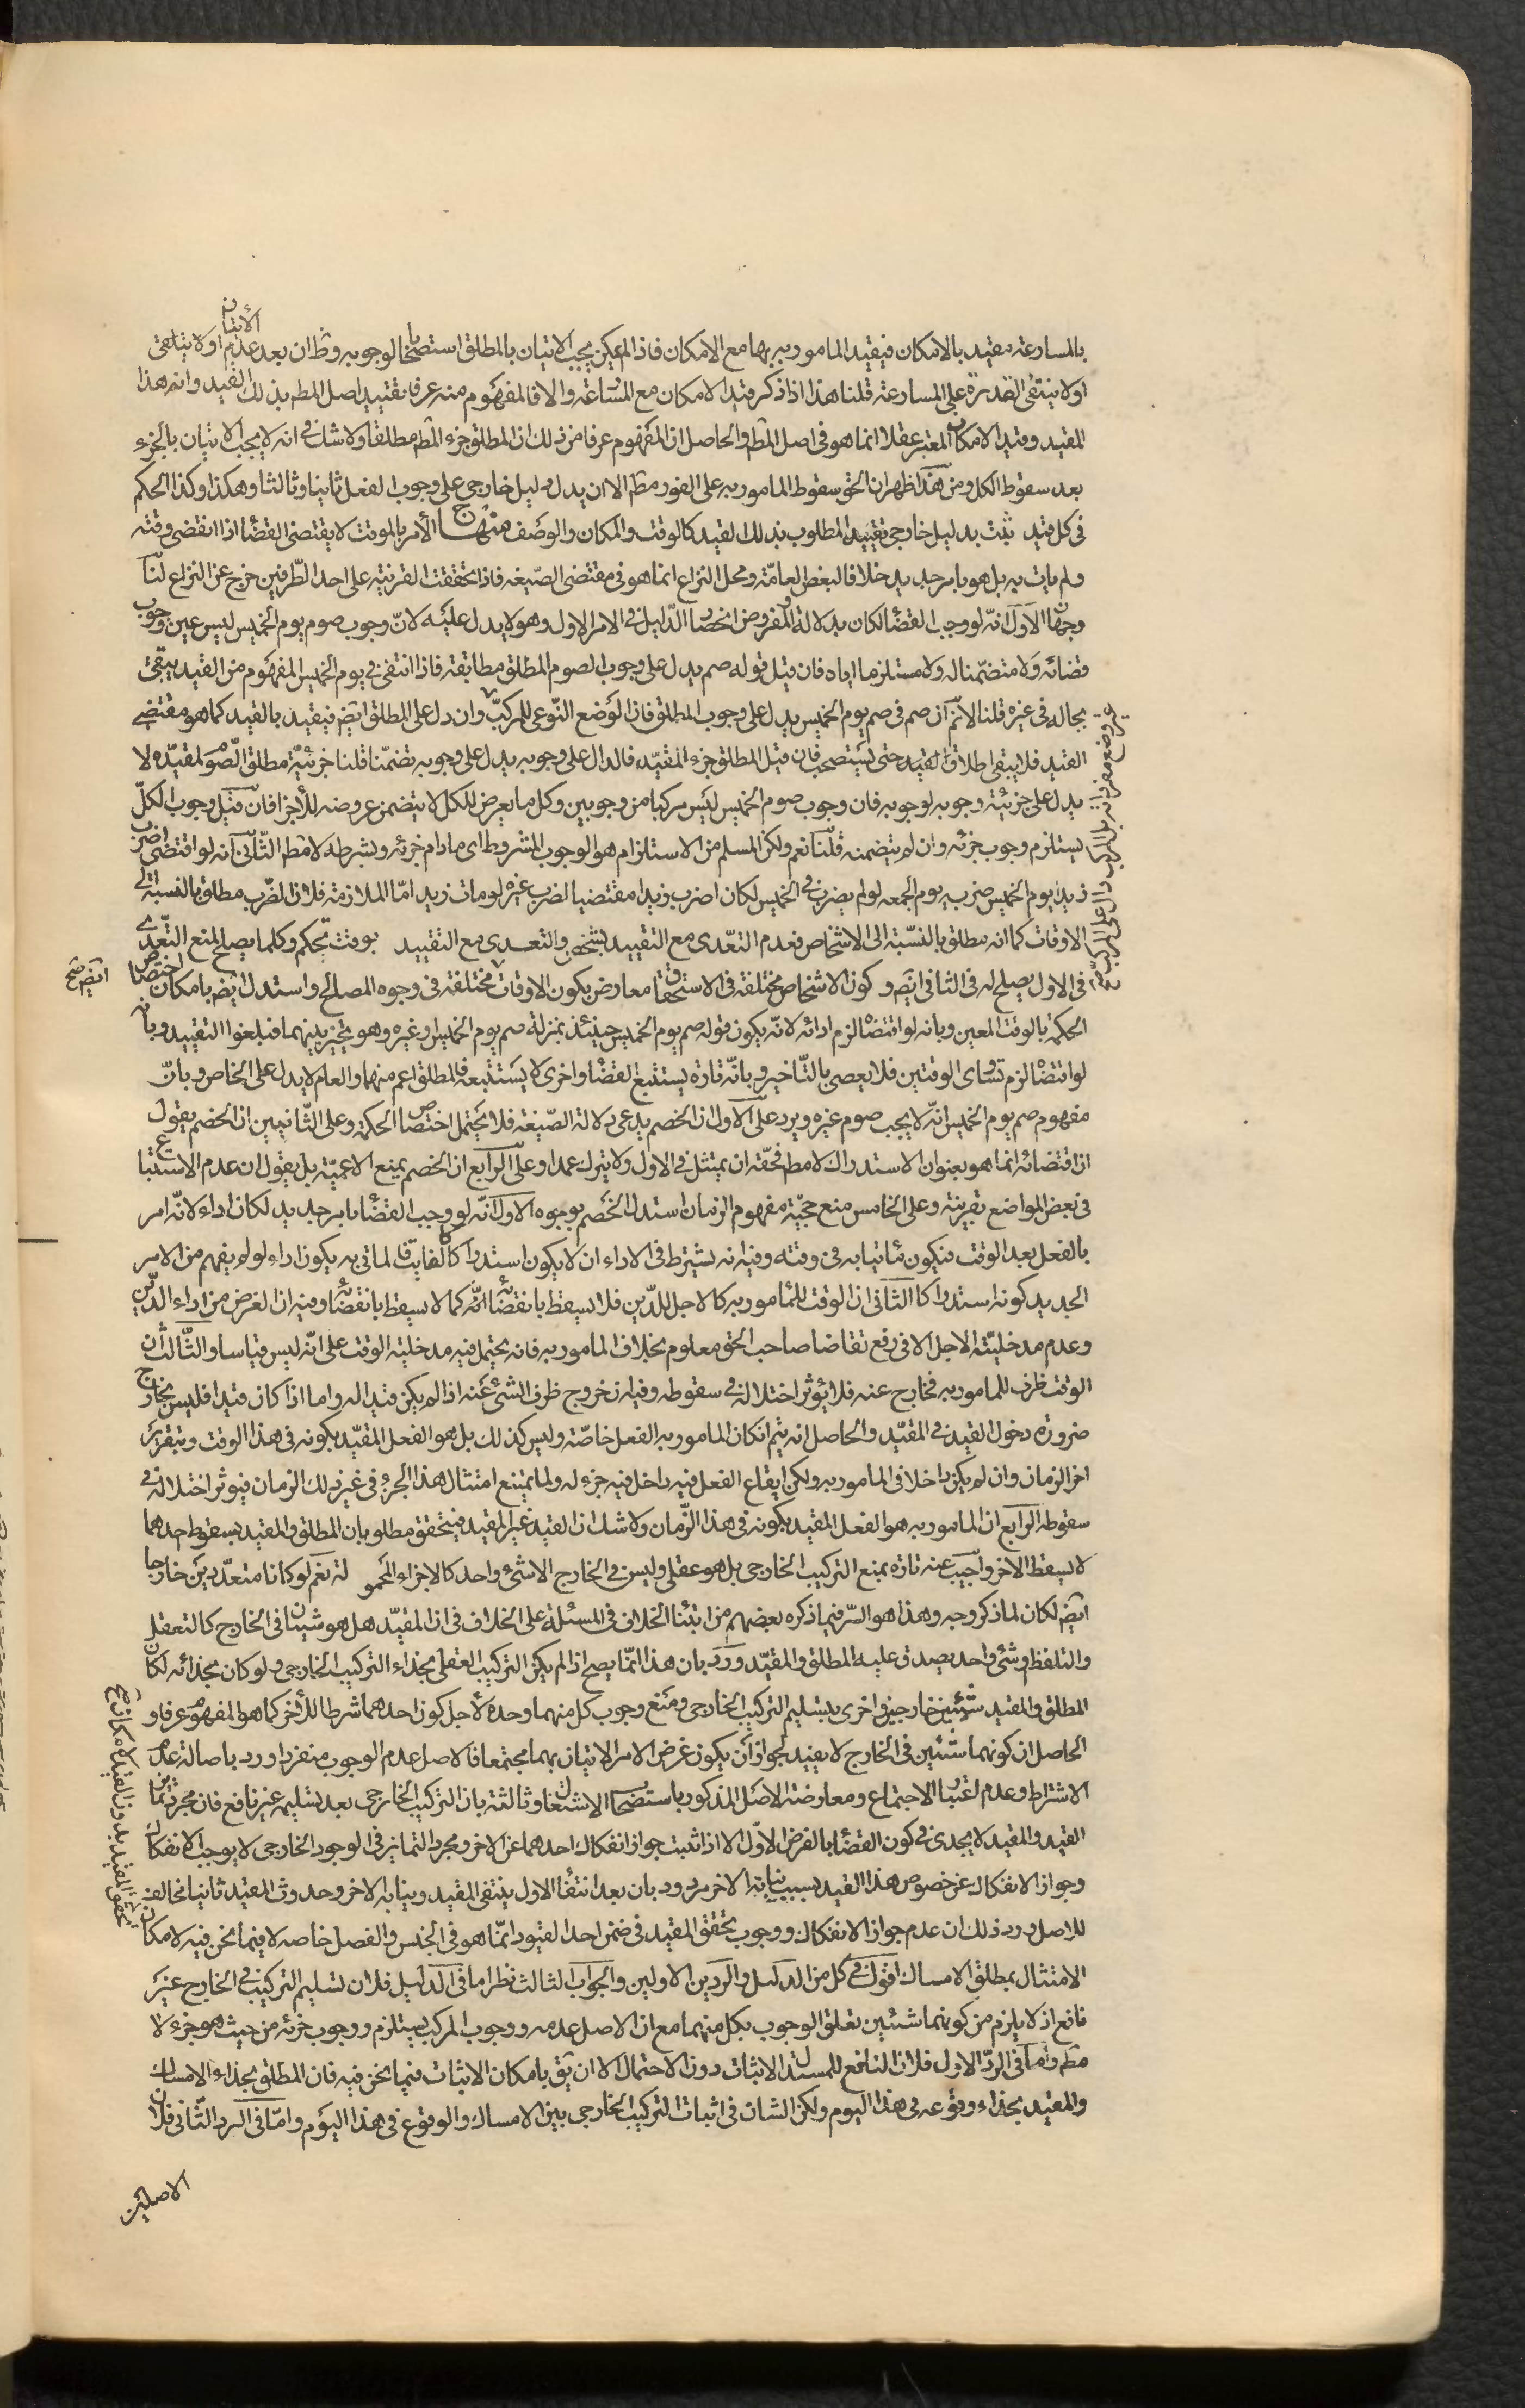 بالمسارعة مقيد بالامكان فيقيد المامور به بها مع الامكان فاذا لم يمكن يجب الاتيان بالمطلق استصحابا لوجوبه وظ ان بعد عدم الاتيان اولا ينتفى
اولا ينتفى القدرة على المسارعة قلنا هذا اذا ذكر قيد الامكان مع المسارعة والا فالمفهوم منه عرفا تقييد اصل المطم بذلك القيد وانه هذا
المقيد وقيد الامكان المعتبر عقلا انما هو فى اصل المطم والحاصل ان المفهوم عرفا من ذلك ان المطلق جزء المطم مطلقا ولا شك فى انه لا يجب الاتيان بالجزء
بعد سقوط الكل ومن هذا ظهر ان الحق سقوط المامور به على الفور مطم الا ان يدل دليل خارجى على وجوب الفعل ثانيا وثالثا وهكذا وكذا الحكم
فى كل قيد ثبت بدليل خارجى تقييد المطلوب بذلك القيد كالوقت والمكان والوصف منهاج الأمر بالموقت لا يقتضى القضاء اذا انقضى وقته
ولم يات به بل هو بامر جديد خلافا لبعض العامّة ومحل النزاع انما هو فى مقتضى الصّيغه فاذا تحققت القرنية على احد الطّرفين خرج عن النزاع لنا
وجهان الاَوّل انّه لو وجب القضاء لكان بدلالة الامر والمفروض انحصار الدّليل فى الامر الاول وهو لا يدل عليه لانّ وجوب صوم يوم الخميس ليس عين وجوب
قضائه ولا متضمّنا له ولا مستلزما اياه فان قيل قوله صم يدل على وجوب الصوم المطلق مطابقة فاذا انتفى فى يوم الخميس المفهوم من القيد يبقى
بحاله فى غيره قلنا لا نم ان صم فى صم يوم الخميس يدل على وجوب المطلق فان الوضع النّوعى للمركبّ وان دل على المطلق ايضم فيقيد بالقيد كما هو مقتضى
القيد فلا يبقى اطلاق القيد حتى يستصحب فان قيل المطلق جزء المقيّد فالدال على وجوبه يدل على وجوبه تضمّنا قلنا جزئيّة مطلق الصّوم لمقيّده لا
يدل على جزئية وجوبه لوجوبه فان وجوب صوم الخميس ليس مركبا من وجوبين وكل ما يعرض للكل لا يتضمن عروضه للأجزا فان قيل وجوب الكلّ
يستلزم وجوب جزئه وان لم يتضمنه قلنا نعم ولكن المسلم من الاستلزام هو الوجوب المشروط اى مادام جزئه وبشرطه لا مطم الثّانى انه لو اقتضى اضرب
زيدا يوم الخميس ضربه يوم الجمعه لو لم يضرب فى الخميس لكان اضرب زيدا مقتضيا لضرب غيره لو مات زيد امّا الملازمة فلان الضّرب مطلق بالنسبة الى
الاوقات كما انه مطلق بالنسّبة الى الاشخاص فعدم التعّدى مع التقييد بشخص والتعدى مع التقييد بوقت تحكم وكلما يصلح لمنع التعّدى
فى الاول يصلح له فى الثانى ايضم وكون الاشخاص مختلفة فى الاستحقاق معارض بكون الاوقات مختلفة فى وجوه المصالح واستدل ايضم بامكان اختصاص
ايضم صح
الحكمة بالوقت المعين وبانه لو اقتضاه لزم ادائه لانّه يكون قوله صم يوم الخميس حينئذ بمنزلة صم يوم الخميس او غيره وهو تخيير بينهما فيلغوا التقييد وبانه
لو اقتضاه لزم تساوى الوقتين فلا يعصى بالتّاخير وبانّه تارة يستتبع القضاء واخرى لا يستتبعه فالمطلق اعم منهما والعام لا يدل على الخاص وبانّ
مفهوم صم يوم الخميس انّه لا يجب صوم غيره ويرد على الاول ان الخصم يدعى دلالة الصّيغة فلا يحتمل اختصاص الحكمة وعلى الثّانيين ان الخصم يقول
ان اقتضائه انما هو بعنوان الاستدراك لا مطم فحّقه ان يمتثل فى الاول ولا يترك عمدا وعلى الرابع ان الخصم يمنع الاعميّة بل يقول ان عدم الاستتباع
فى بعض المواضع بقرينة وعلى الخامس منع حجيّة مفهوم الزمان استدل الخصم بوجوه الاول انّه لو وجب القضاء بامر جديد لكان اداء لانّه امر
بالفعل بعد الوقت فيكون ماتيا به فى وقته وفيه انه يشترط فى الاداء ان لا يكون استدراكا لفايت فالماتى به يكون اداء لو لم يفهم من الامر
الجديد كونه استدراكا الثانى ان الوقت للمامور به كالاجل للدّين فلا يسقط بانقضائه كما لا يسقط بانقضائه وفيه ان الغرض من اداء الدّين
وعدم مدخليّة الاجل الا فى رفع تقاضا صاحب الحق معلوم بخلاف المامور به فانه يحتمل فيه مدخلية الوقت على انّه ليس قياسا والثّالث ان
الوقت ظرف للمامور به فخارج عنه فلا يؤثر اختلاله فى سقوطه وفيه ان خروج ظرف الشئ عنه اذا لم يكن قيدا له واما اذا كان قيدا فليس بخارج
ضرورة دخول القيد فى المقيّد والحاصل انه يتم ان كان المامور به الفعل خاصّة وليس كذلك بل هو الفعل المقيّد بكونه فى هذا الوقت وبتقرير
اخر الزمان وان لم يكن داخلا فى المامور به ولكن ايقاع الفعل فيه داخل فيه جزء له ولما يمتنع امتثال هذا الجزء فى غير ذلك الزمان فيؤثر اختلاله فى
سقوطه الرابع ان المامور به هو الفعل المقيد بكونه فى هذا الزّمان ولا شك ان القيد غير المقيد فيتحقق مطلوبان المطلق والمقيد بسقوط احدهما
لا يسقط الاخر واجيب عنه تارة بمنع التركيب الخارجى بل هو عقلى وليس فى الخارج الا شئ واحد كالاجزاء المحمولة نعم لو كانا متعدّدين خارجا
ايضم لكان لما ذكر وجه وهذا هو السّر فيما ذكره بعضهم من ابتناء الخلاف فى المسئلة على الخلاف فى ان المقيّد هل هو شيئان فى الخارج كالتعقل
والتلفظ او شئ واحد يصدق عليه المطلق والمقيّد ورد بان هذا انمّا يصح اذا لم يكن التركيب العقلى بحذاء التركيب الخارجى ولو كان بحذائه لكان
المطلق والمقيد شئيين خارجيين واخرى بتسليم التركيب الخارجى ومنع وجوب كل منهما وحده لأجل كون احدهما شرطا للأخر كما هو المفهوم عرفا و
الحاصل ان كونهما شيئين فى الخارج لا يفيد لجواز ان يكون غرض الامر الاتيان بهما مجتمعا فالاصل عدم الوجوب منفردا ورد باصالة عدم
الاشتراط وعدم اعتبار الاجتماع ومعارضة الاصل المذكور باستصحاب الاشتغال وثالثة بان التركيب الخارجى بعد تسليمه غير نافع فان مجرد تمايز
القيد والمقيد لا يجدى فى كون القضاء بالفرض الاوّل الا اذا ثبت جواز انفكاك احدهما عن الاخر ومجرد التمايز فى الوجود الخارجى لا يوجب الانفكاك
وجواز الانفكاك عن خصوص هذا القيد بسبب نيابة الاخر مردود بان بعد انتفاء الاول ينتفى المقيد ونيابة الاخر وحدوث المقيد ثانيا مخالف
للاصل ورد ذلك ان عدم جواز الانفكاك ووجوب تحقق المقيد فى ضمن احد القيود انمّا هو فى الجنس والفصل خاصه لا فيما نحن فيه لامكان
الامتثال بمطلق الامساك اقول فى كل من الدليل والردين الاولين والجواب الثالث نظر اما فى الدليل فلان تسليم التركيب فى الخارج غير
نافع اذ لا يلزم من كونهما شيئين تعلق الوجوب بكل منهما مع ان الاصل عدمه ووجوب المركب يستلزم ووجوب جزئه من حيث هو جزء لا
مطم واما فى الردّ الاول فلان النافع للمستدل الاثبات دون الاحتمال الا ان يق بامكان الاثبات فيما نحن فيه فان المطلق بحذاء الامساك
والمقيد بحذاء وقوعه فى هذا اليوم ولكن الشان فى اثبات التركيب الخارجى بين الامساك والوقوع فى هذا اليوم وامّا فى الرد الثّانى فلان
الاصلين